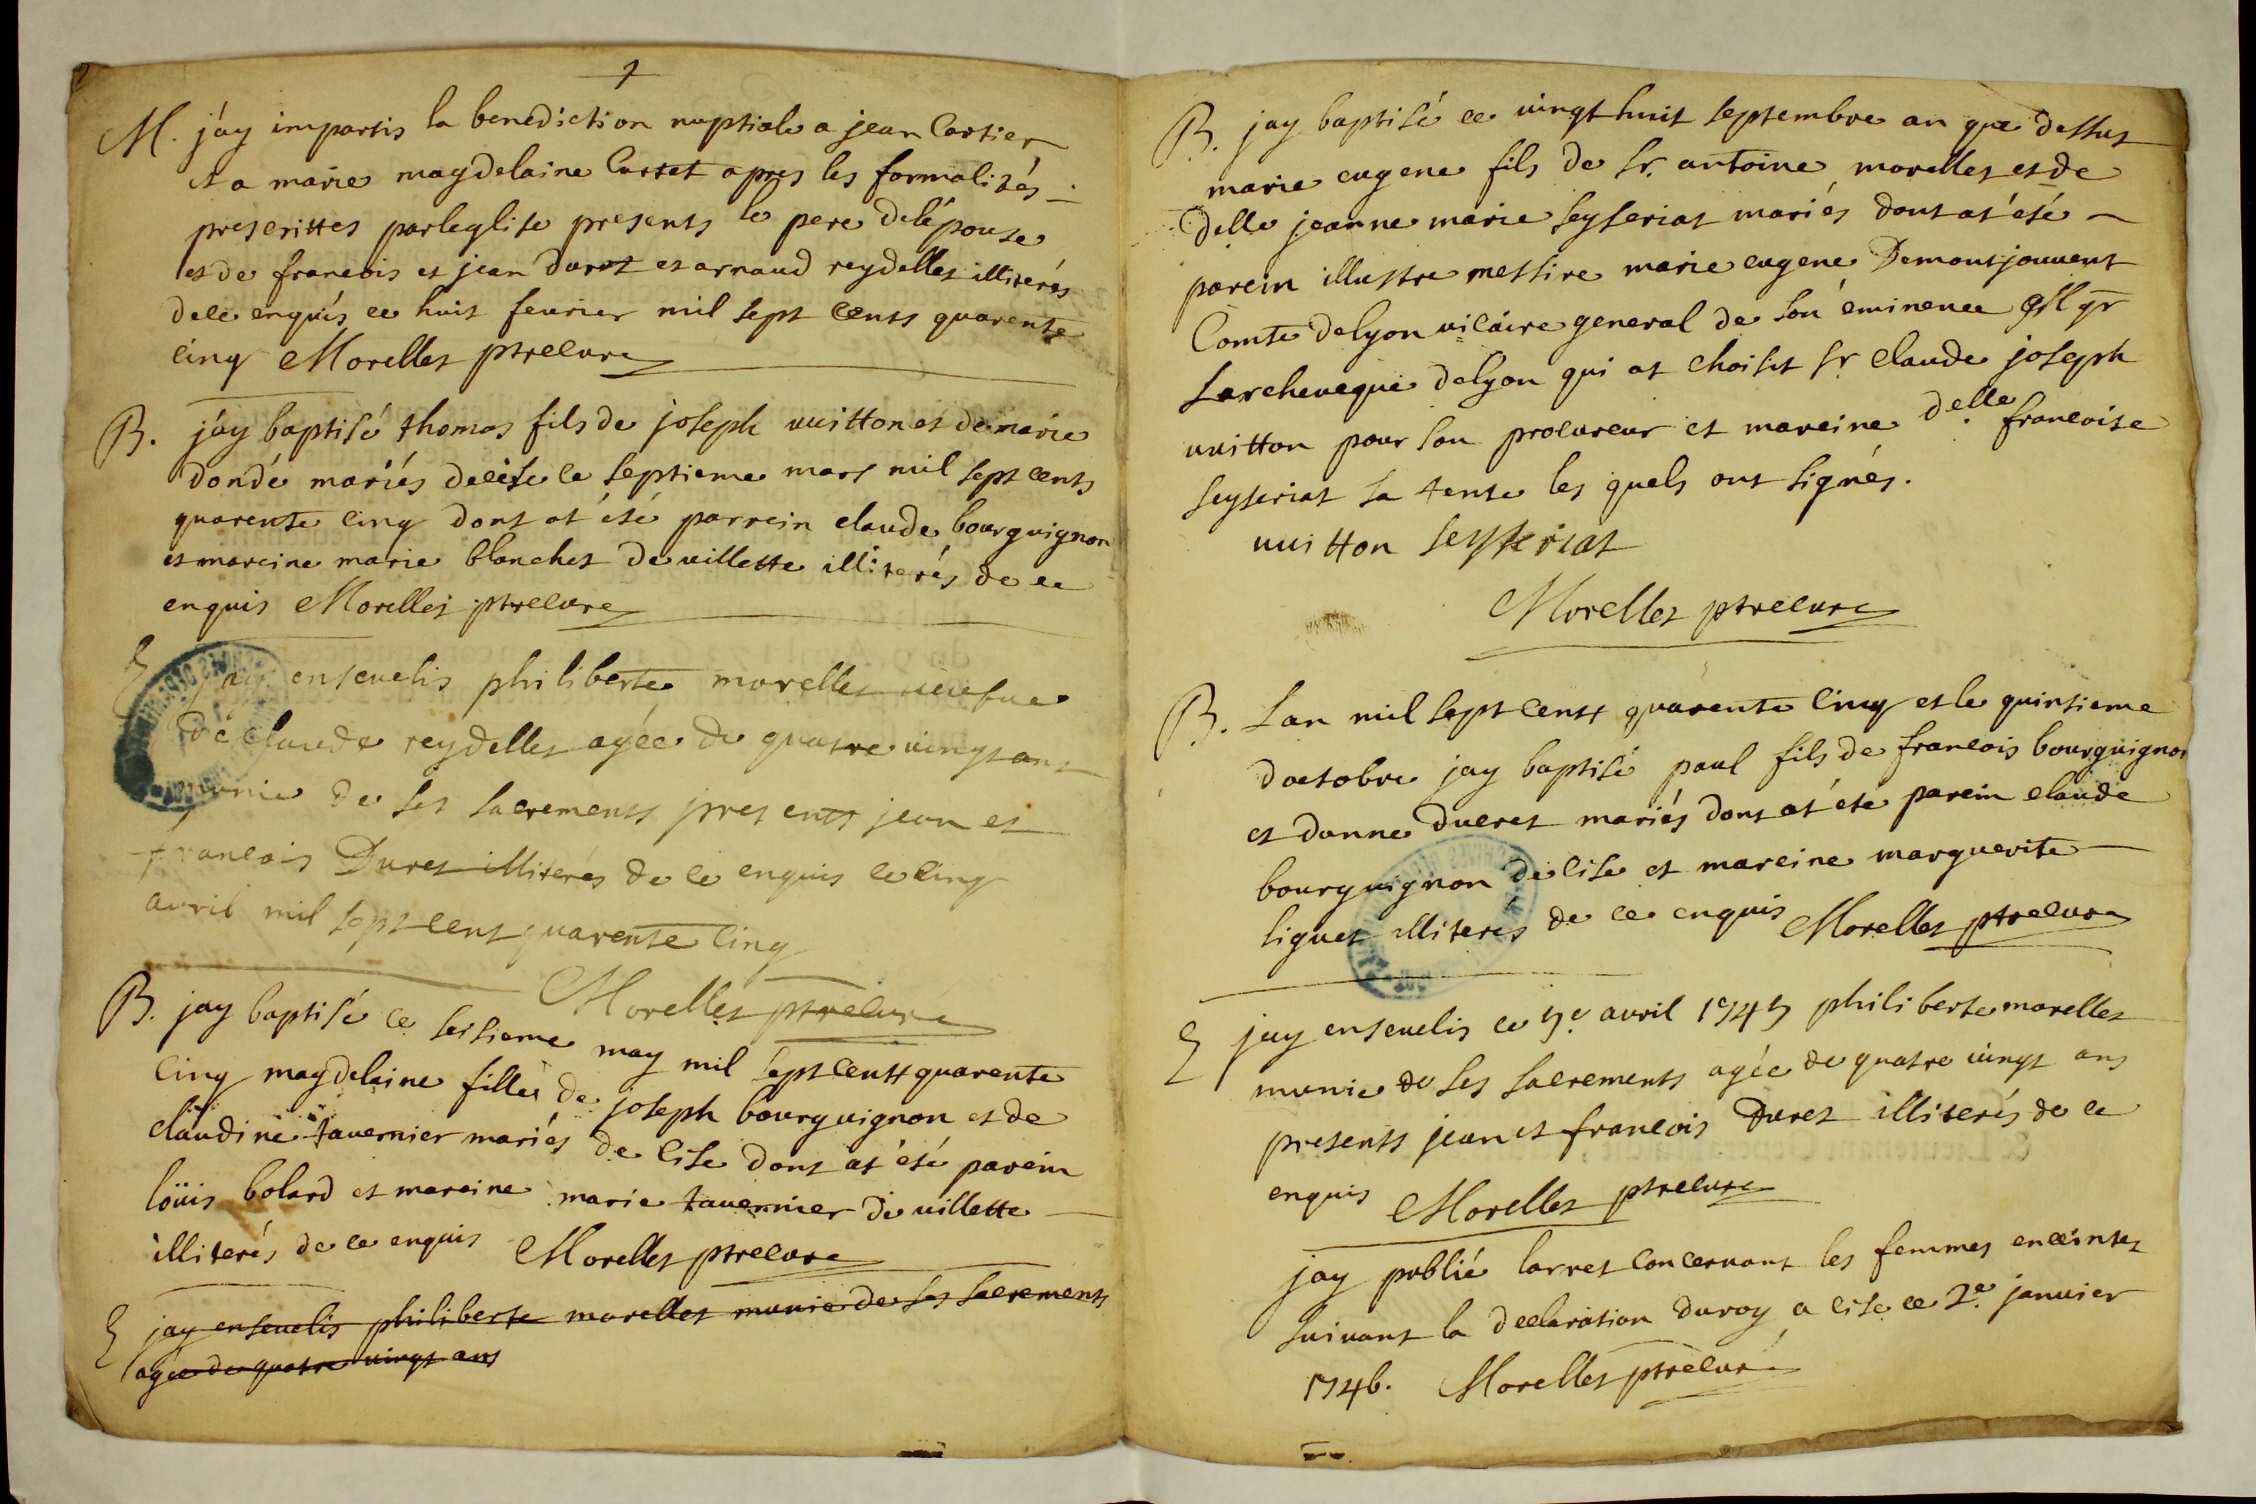 M. j'ay impartis la benediction nuptiale a jean Cartier
et a marie magdelaine Cartet apres les formalités
prescrittes par leglise presents le pere delépouse
et de francois et jean Duret et arnaud reydellet illiterés
dece enquis ce huit feurier mil sept cents quarente
cinq Morellet ptrecure
B. j'ay baptisé thomas fils de joseph uuitton et de marie
dondé mariés decise ce septieme mars mil sept cents
quarente cinq dont at été parrein claude bourguignon
et mareine marie blanchet de uillette illiterés de ce
enquis Morellet ptrecure
E jay enseuelis philiberte morellet ueufue
de claude reydellet agée de quatre uingt ans
munie de ses sacrements presents jean et
francois Duret illiterés de ce enquis ce cinq
auril mil sept cent quarente cinq
Morellet ptrecure
B. jay baptisé ce seisieme may mil sept cents quarente
cinq magdelaine fille de joseph bourguignon et de
claudine tauernier mariés de cise dont at été parein
loüis bolard et mareine marie tauernier de uillette
illiterés de ce enquis Morellet ptrecure
E jay enseuelis philiberte morellet munie de ses sacrements
agée de quatre uingt ans
B. jay baptisé ce uingt huit septembre an que dessus
marie eugene fils de Sr. antoine morellet et de
delle jeanne marie seyseriat mariés dont at été
parein illustre messire marie eugene Demontjouuent
Comte delyon uicaire general de son eminence Mgr
Larcheueque delyon qui at choisit Sr claude joseph
uuitton pour son procureur et mareine delle francoise
seyseriat sa tente les quels ont signés.
uuitton seysseriat
Morellet ptrecure
B. Lan mil sept cents quarente cinq et le quinsieme
doctobre jay baptisé paul fils de francois bourguignon
et danne ducret mariés dont at été parein claude
bourguignon de cise et mareine marguerite
liguet illiterés de ce enquis Morellet ptrecure
E jay enseuelis ce 5e auril 1745 philiberte morellet
munie de ses sacrements agée de quatre uingt ans
presents jean et francois Duret illiterés de ce
enquis Morellet ptrecure
jay publié larret concernant les femmes enceintes
suiuant la declaration du roy a cise ce 2e januier
1746. Morellet ptrecure